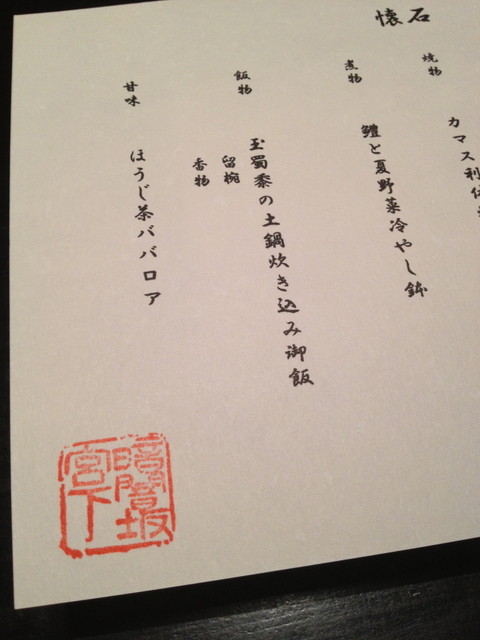 懐石
焼物
カマス利休
煮物
鱧と夏野菜冷やし鉢
飯物
玉蜀黍の土鍋炊き込み御飯
留椀
香物
甘味
ほうじ茶ババロア
暗闇坂
宮下